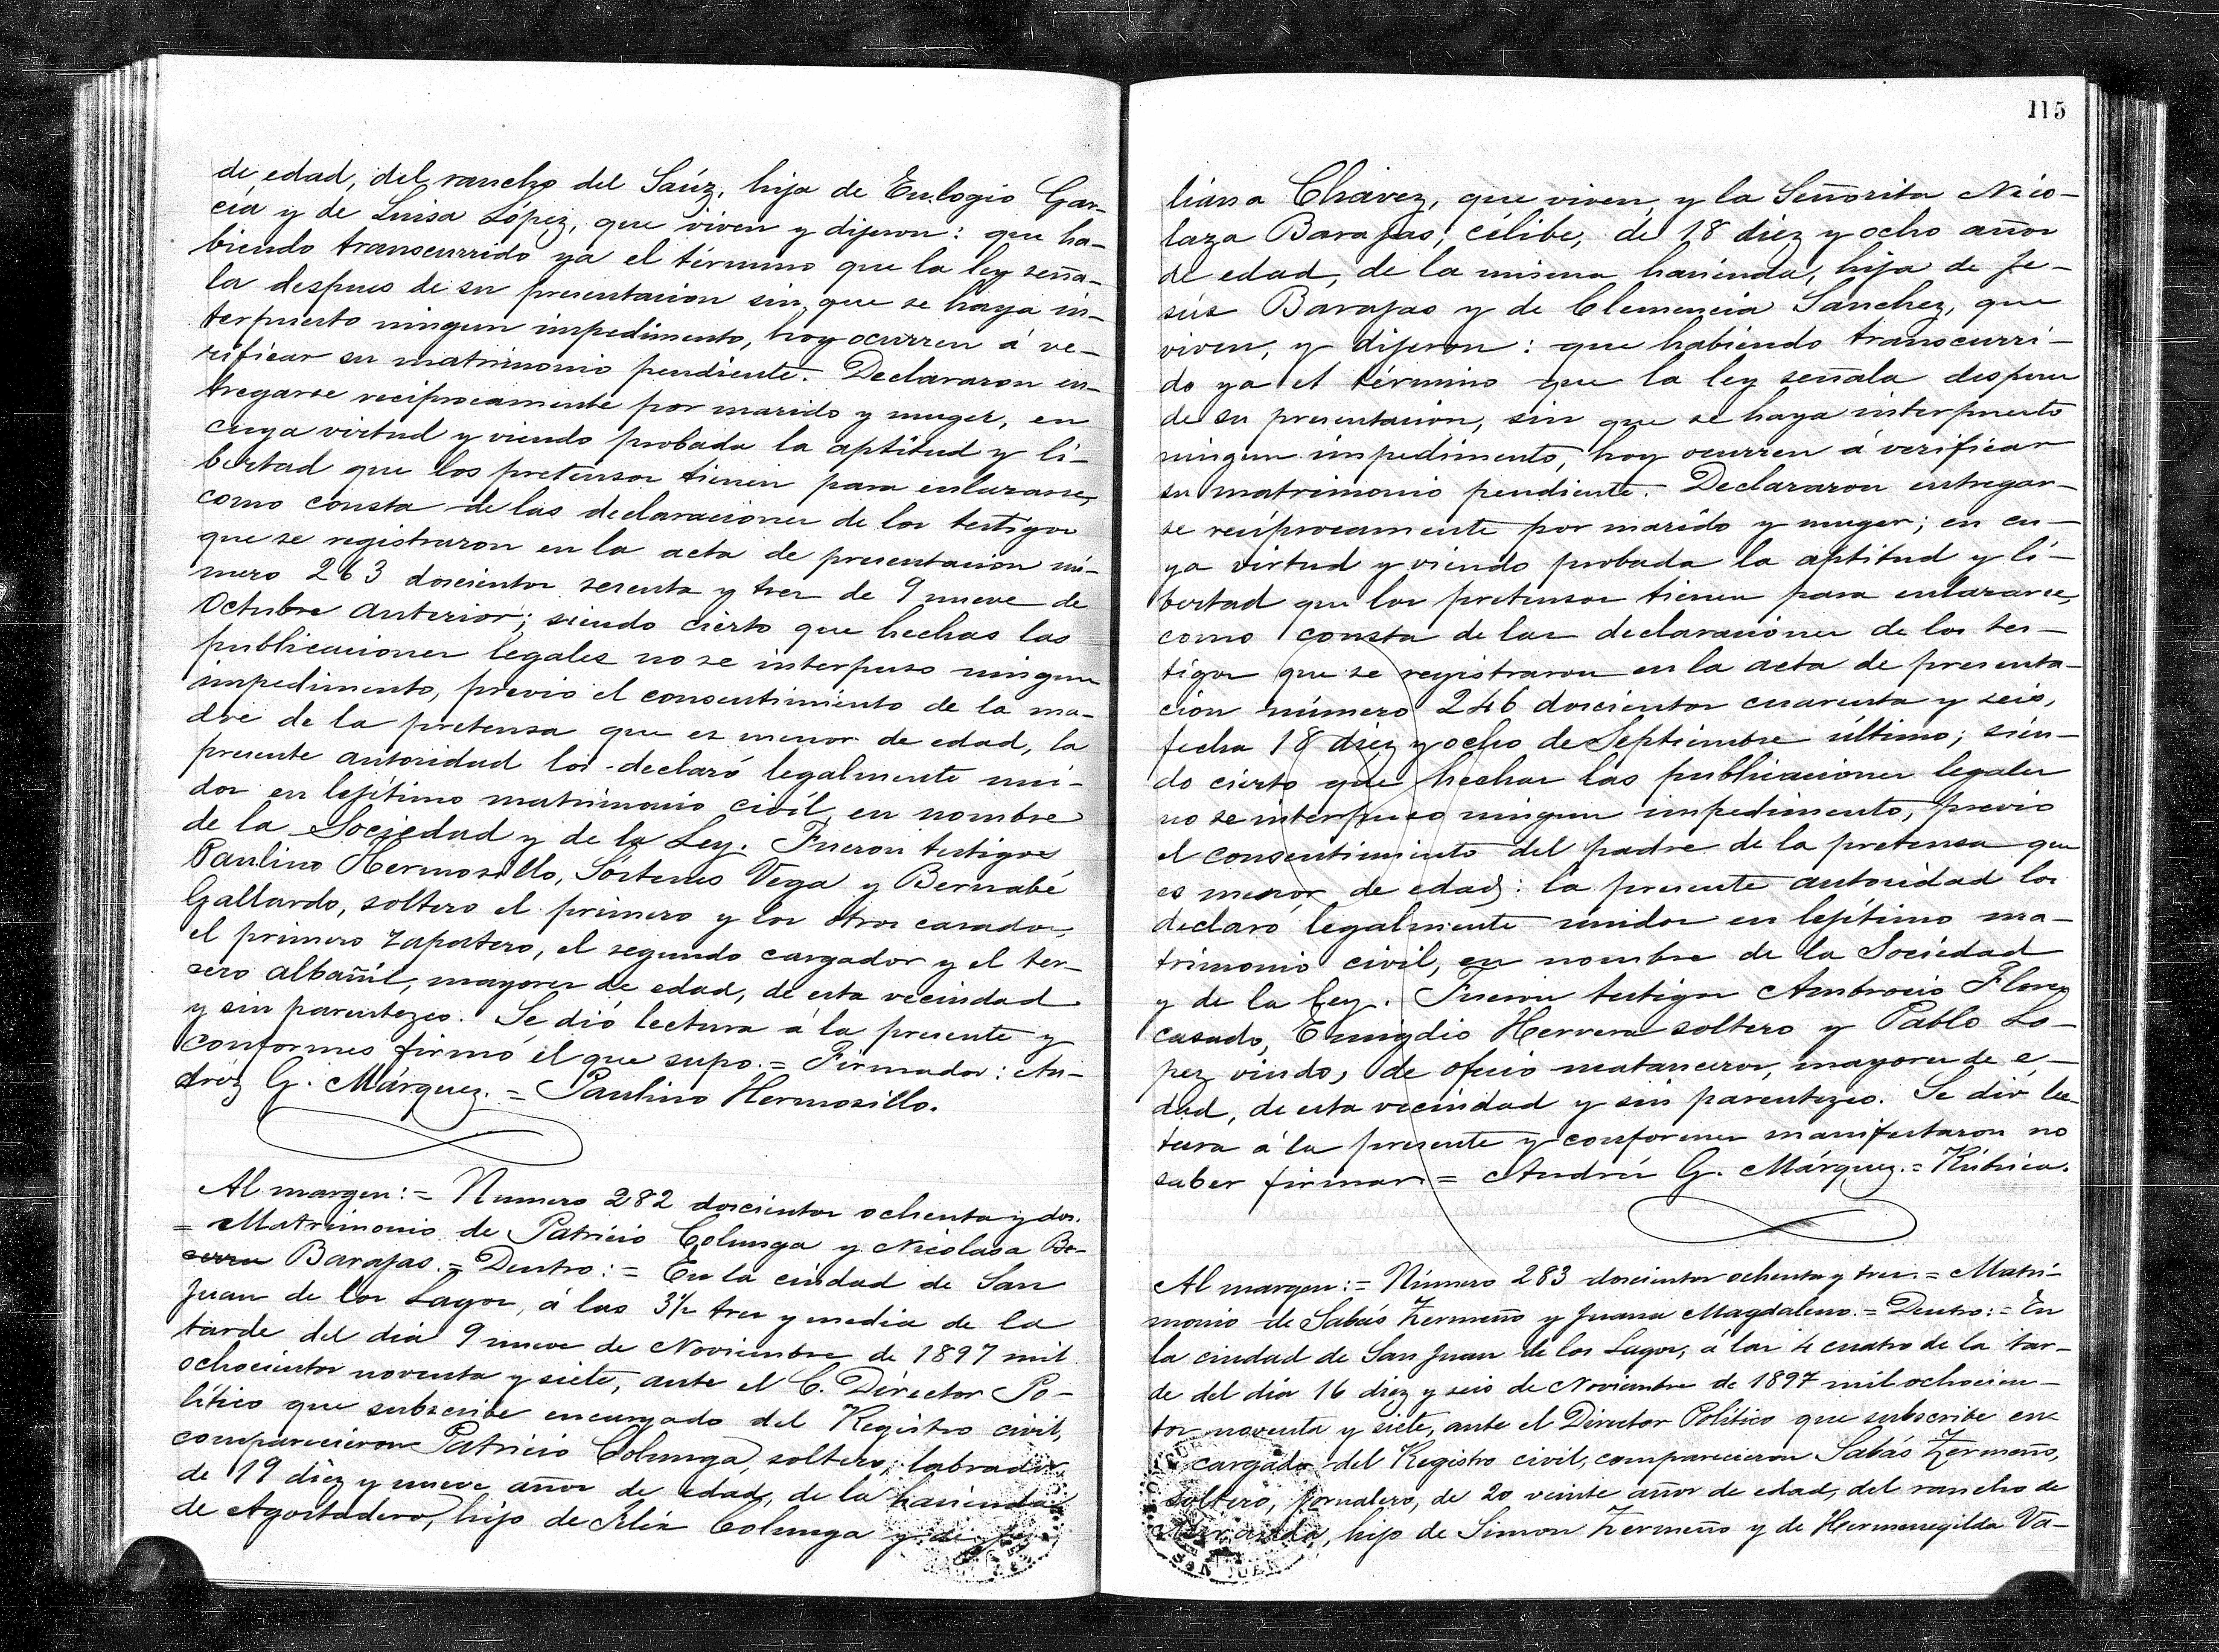 de edad, del rancho del Saúz, hija de Eulogio Gar-
cía y de Luisa López, que viven y dijeron: que ha-
biendo transcurrido ya el término que la ley seña-
la despues de su presentacion sin que se haya in-
terpuesto ningun impedimento, hoy ocurren á ve-
rificar su matrimonio pendiente. Declararon en-
tregarse recíprocamente por marido y muger, en
cuya virtud y viendo probada la aptitud y li-
bertad que los pretensos tienen para enlazarse,
como consta de las declaraciones de los testigos
que se registraron en la acta de presentacion nú-
mero 263 doscientos sesenta y tres de 9 nueve de
Octubre anterior; siendo cierto que hechas las
publicaciones legales no se interpuso ningun
impedimento, previo el consentimiento de la ma-
dre de la pretensa que es menor de edad, la
presente autoridad los declaró legalmente uni-
dos en lejítimo matrimonio civil, en nombre
de la Sociedad y de la Ley. Fueron testigos
Paulino Hermosillo, Sóstenes Vega y Bernabé
Gallardo, soltero el primero y los otros casados,
el primero zapatero, el segundo cargador y el ter-
cero albañil, mayores de edad, de esta vecindad
y sin parentezco. Se dió lectura á la presente y
conformes firmó el que supo. = Firmados: An-
dréz G. Márquez. = Paulino Hermosillo.
Al margen: = Numero 282 doscientos ochenta y dos.
= Matrimonio de Patricio Colunga y Nicolasa Be-
cerra Barajas. = Dentro: = En la ciudad de San
Juan de los Lagos, á las 3½ tres y media de la
tarde del día 9 nueve de Noviembre de 1897 mil
ochocientos noventa y siete, ante el C. Director Po-
lítico que subscribe encargado del Registro civil,
comparecieron Patricio Colunga, soltero, labrador
de 19 diez y nueve años de edad, de la hacienda
de Agostadero, hijo de Félix Colunga y de
115
liana Chavez, que viven, y la Señorita Nico-
laza Barajas, célibe, de 18 diez y ocho años
de edad, de la misma hacienda, hija de Je-
sús Barajas y de Clemencia Sanchez, que
viven, y dijeron: que habiendo transcurri-
do ya el término que la ley señala despues
de su presentacion, sin que se haya interpuesto
ningun impedimento, hoy ocurren á verificar
su matrimonio pendiente. Declararon entregar-
se recíprocamente por marido y muger; en cu-
ya virtud y viendo probada la aptitud y li-
bertad que los pretensos tienen para enlazarse,
como consta de las declaraciones de los tes-
tigos que se registraron en la acta de presenta-
cion número 246 doscientos cuarenta y seis,
fecha 18 diez y ocho de Septiembre último; sien-
do cierto que hechas las publicaciones legales
no se interpuso ningun impedimento, previo
el consentimiento del padre de la pretensa que
es menor de edad: la presente autoridad los
declaró legalmente unidos en lejítimo ma-
trimonio civil, en nombre de la Sociedad
y de la Ley. Fueron testigos Ambrocio Flores
casado, Emigdio Herrera soltero y Pablo Lo-
pez viudo, de oficio matanceros, mayores de e-
dad, de esta vecindad y sin parentezco. Se dió lec-
tura á la presente y conformes manifestaron no
saber firmar. = Andrés G. Márquez. = Rúbrica.
Al margen: = Número 283 doscientos ochenta y tres. = Matri-
monio de Sabás Zermeño y Juana Magdaleno. = Dentro: = En
la ciudad de San Juan de los Lagos, á las 4 cuatro de la tar-
de del día 16 diez y seis de Noviembre de 1897 mil ochocien-
tos noventa y siete, ante el Director Político que subscribe en-
cargado del Registro civil, comparecieron Sabás Zermeño,
soltero, jornalero, de 20 veinte años de edad, del rancho de
hijo de Simon Zermeño y de Hermenegilda Va-